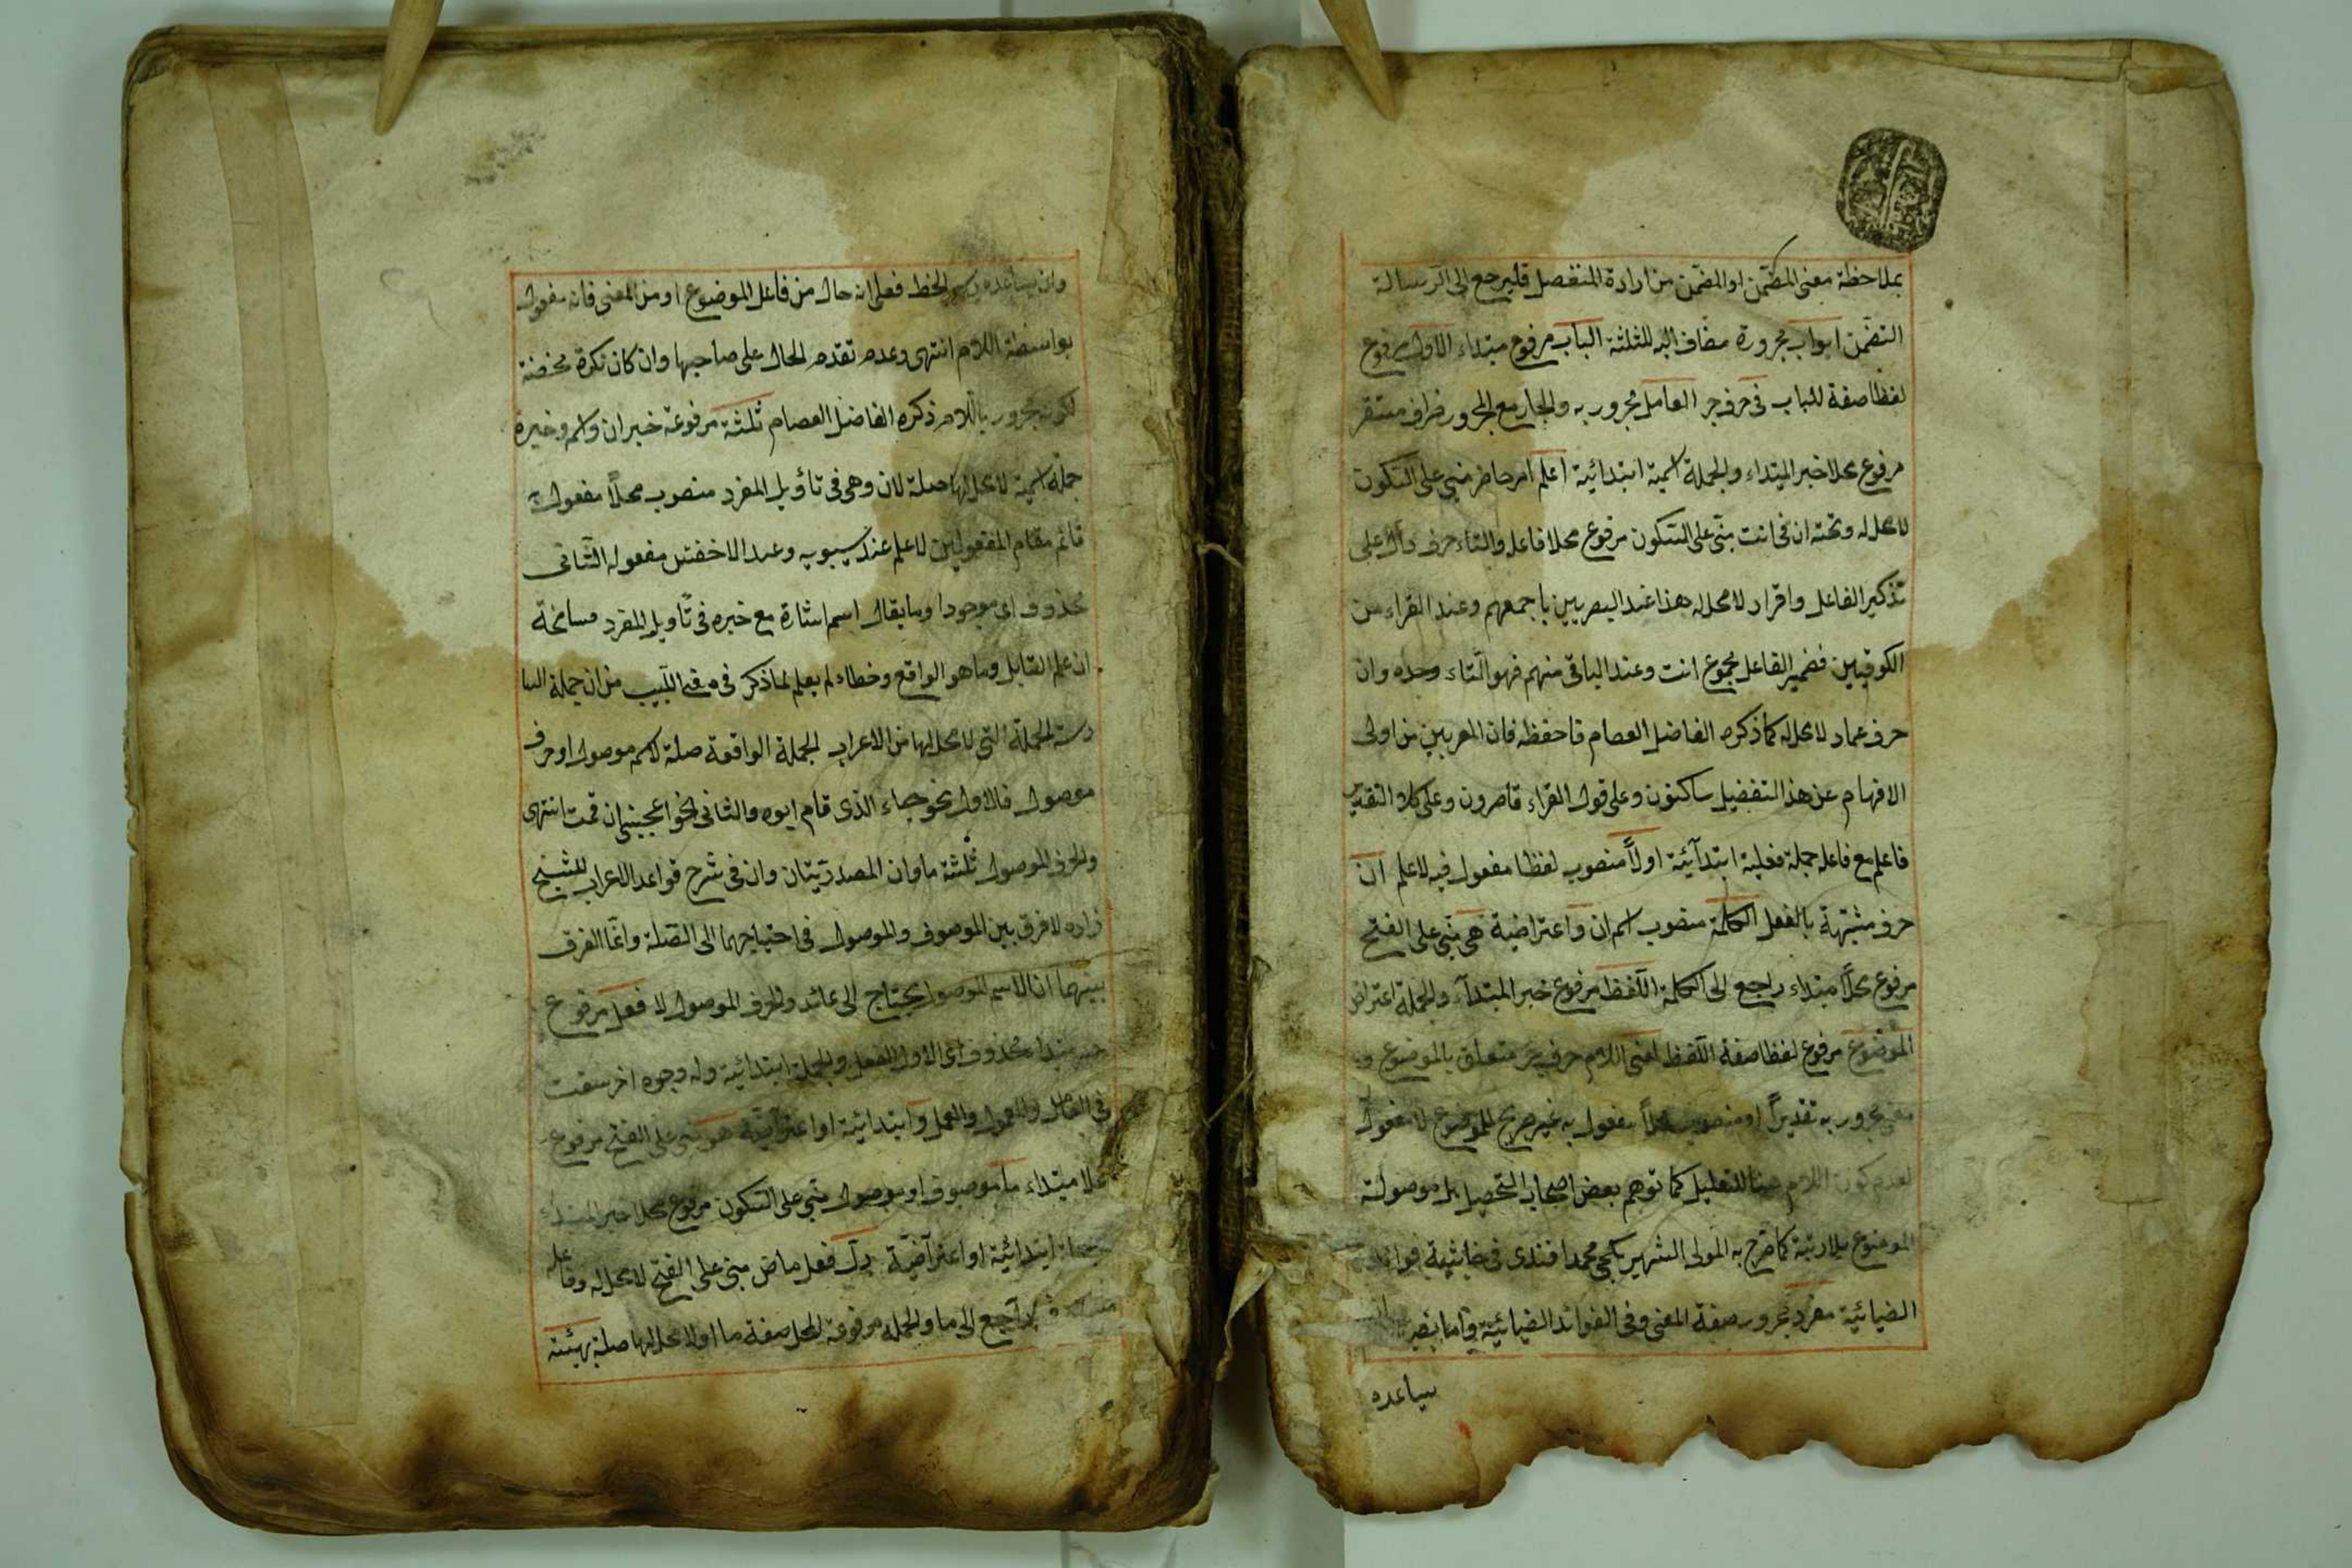 بملاحظة معنى المتضمن او المضمن من ارادة التفصيل فليرجع الى الرسالة
التضمن ابواب مجرورة مضاف اليه للثلثة الباب مرفوع مبتداء الاول مرفوع
لفظا صفة للباب فى حرف جر العامل مجرور به والجار مع المجرور ظرف مستقر
مرفوع محلا خبر المبتداء والجملة اسمية ابتدائية اعلم امر حاضر مبنى على السكون
لا محل له وتحته ان فى انت مبنى على السكون مرفوع محلا فاعله والتاء حرف دال على
تذكير الفاعل وافراد لا محل له هذا عند البصريين باجمعهم وعند الفراء من
الكوفيين فضمير الفاعل مجموع انت وعند الباقى منهم فهو التاء وحده وان
حرف عماد لا محل له كما ذكره الفاضل العصام فاحفظه فان المعربين من اولى
الافهام عن هذا التفضيل ساكتون وعلى قول الفراء قاصرون وعلى كلا التقدير
فاعلم مع فاعله جملة فعلية ابتدآئية اولاً منصوب لفظا مفعول فيه لاعلم ان
حرف مشبهة بالفعل الكلمة منصوب اسم ان واعتراضية هى مبنى على الفتح
مرفوع محلاً مبتداء راجع الى الكلمة اللفظ مرفوع خبر المبتدآء والجملة اعتراض
الموضوع مرفوع لفظا صفة اللفظ لمعنى اللام حرف جر متعلق بالموضوع و
معنى مجرور به تقديراً او منصوب محلاً مفعول به غير صريح للموضوع لا مفعول
لعدم كون اللام هنا للتعليل كما توهم بعض اصحاب التحصيل بل موصولة
الموضوع بلا ريبة كما صرح به المولى الشهير بكجى محمد افندى فى حاشية فوائد
الضيائية مفرد مجرور صفة المعنى وفى الفوائد الضيائية واما نصبه
يساعده
وان يساعده رسم الخط فعلى انه حال من فاعل الموضوع او من المعنى فانه مفعول
بواسطة اللام انتهى وعدم تقدم الحال على صاحبها وان كان نكرة محضة
لكونه مجرور باللام ذكره الفاضل العصام ثلثة مرفوعة خبر ان واسمه وخبره
جملة اسمية لا محل لها صلة لان وهى فى تأويل المفرد منصوب محلاً مفعول به
قائم مقام المفعولين لاعلم عند سيبويه وعند الاخفش مفعوله الثانى
محذوف اى موجودا وما يقال اسم اشارة مع خبره فى تأويل المفرد مسامحة
ان علم القابل وما هو الواقع وخطاء لم يعلم لما ذكر فى مغنى اللبيب من ان جملة السا
دسة الجملة التى لا محل لها من الاعراب الجملة الواقعة صلة لاسم موصول او حرف
موصول فالاول نحو جاء الذى قام ابوه والثانى نحو اعجبنى ان قمت انتهى
والحرف الموصول ثلثة ما وان المصدريتان وان فى شرح قواعد الاعراب للشيخ
زاده لا فرق بين الموصوف والموصول فى احتياجهما الى الصلة وانما الفرق
بينهما ان الاسم الموصول يحتاج الى عائد والحرف الموصول لا فعل مرفوع
خبر مبتدا محذوف اى الاول الفعل والجملة ابتدائية وله وجوه اخر سبقت
فى العامل والمعمول والعمل وابتدائية او اعتراضية هو مبنى على الفتح مرفوع
محلا مبتداء ما موصوف او موصول مبنى على السكون مرفوع محلا خبر المبتداء
جملة ابتدائية او اعتراضية دل فعل ماض مبنى على الفتح لا محل له وفاعله
راجع الى ما والجملة مرفوعة المحل صفة ما او لا محل لها صلة بهيئته